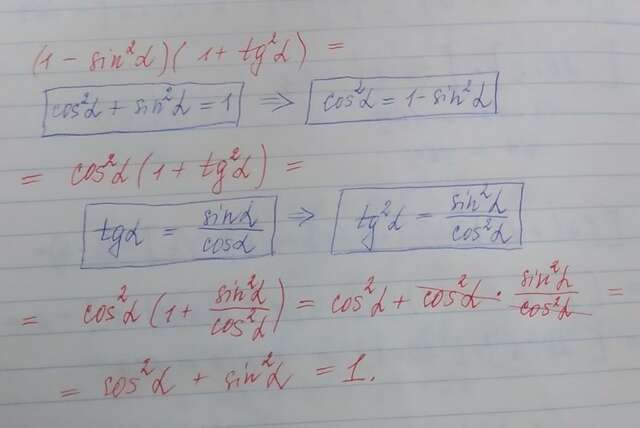 (1 - sin²α)(1 + tg²α) =
cos²α + sin²α = 1 ⇒ cos²α = 1 - sin²α
= cos²α (1 + tg²α) =
tgα = sinα/cosα ⇒ tg²α = sin²α/cos²α
= cos²α (1 + sin²α/cos²α) = cos²α + cos²α · sin²α/cos²α =
= cos²α + sin²α = 1.